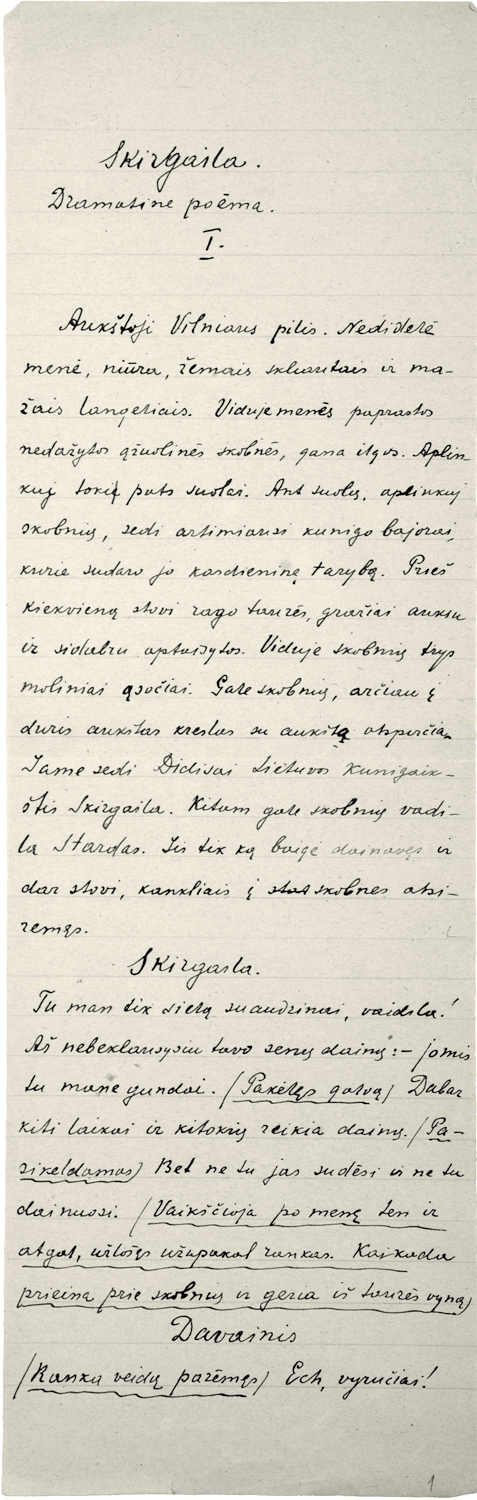 Skirgaila.
Dramatinė poēma.
I.
Aukštoji Vilniaus pilis. Nedidelė
menė, niūra, žemais skliautais ir ma-
žais langeliais. Viduje menės paprastos
nedažytos ąžuolinės skobnės, gana ilgos. Aplin-
kuj tokię pats suolai. Ant suolų, aplinkuj
skobnių, sedi artimiausi kunigo bajorai,
kurie sudaro jo kasdieninę tarybą. Prieš
kiekvieną stovi rago taurės, gražiai auksu
ir sidabru aptaisytos. Viduje skobnių trys
moliniai ąsočiai. Gale skobnių, arčiau į
duris aukštas kreslas su aukštą atsparčia.
Jame sedi Didisai Lietuvos Kunigaik-
štis Skirgaila. Kitam gale skobnių vadi-
la Stardas. Jis tik ką baigė dainavęs ir
dar stovi, kankliais į skobnes atsi-
remęs.
Skirgaila.
Tu man tik sielą suaudrinai, vaidila!
Aš nebeklausysiu tavo senų dainų: – jomis
tu mane gundai. (Pakėlęs galvą) Dabar
kiti laikai ir kitokių reikia dainų. (Pa-
sikeldamas) Bet ne tu jas sudėsi ir ne tu
dainuosi. (Vaikščioja po menę ten ir
atgal, užlošęs užupakal rankas. Kaikada
prieina prie skobnių ir geria iš taurės vyną)
Davainis
(Ranka veidą parėmęs) Ech, vyručiai!
1